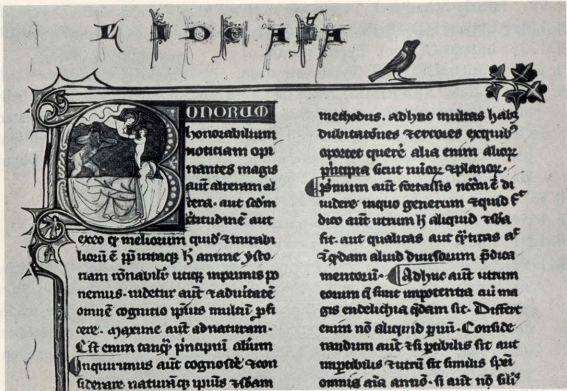 I DE A IA
BONORUM
honorabilium
noticiam opi
nantes magis
aut alteram al
tera. aut scdm
certitudinē aut
exeo qͥ meliorum quid̄ & mirabi
liorū ē pp utraqͣ h̄ anime ysto
nam rōnabilit̄ utiqͣ inprimis po
nemus. uidetur aut̄ & aduitatē
omnē cognitio ipius multū pfi
cere. maxime aut̄ adnaturam.
Est enim tanqͣ principiū alium
Inquirimus aut̄ cognosc̄e & con
siderare naturā qͣ ipius & sbam
methodus. adhuc multas habꝫ
dubitatōnes & errores exquibꝫ
oportet quere alia enim alioꝝ
principia sicut nūoꝝ & planoꝝ.
Primum aut̄ fortassis necē ē di
uidere inquo generum & quid ē
dico aut̄ utrum h̄ aliquid & sba
sit. aut qualitas aut qͣtitas aͭ
& qdam aliud diuisorum p̄dica
mentorū. Adhuc aut̄ utrum
eorum q̄ sunt inpotentia aū ma
gis endelichia qdam sit. Differt
enim nō aliquid puū. Conside
randum aut̄ & si ptibilis sit aut
inptibilis & utrū sit similis spēi
omnis aīa an nō. si aut̄ nō silis